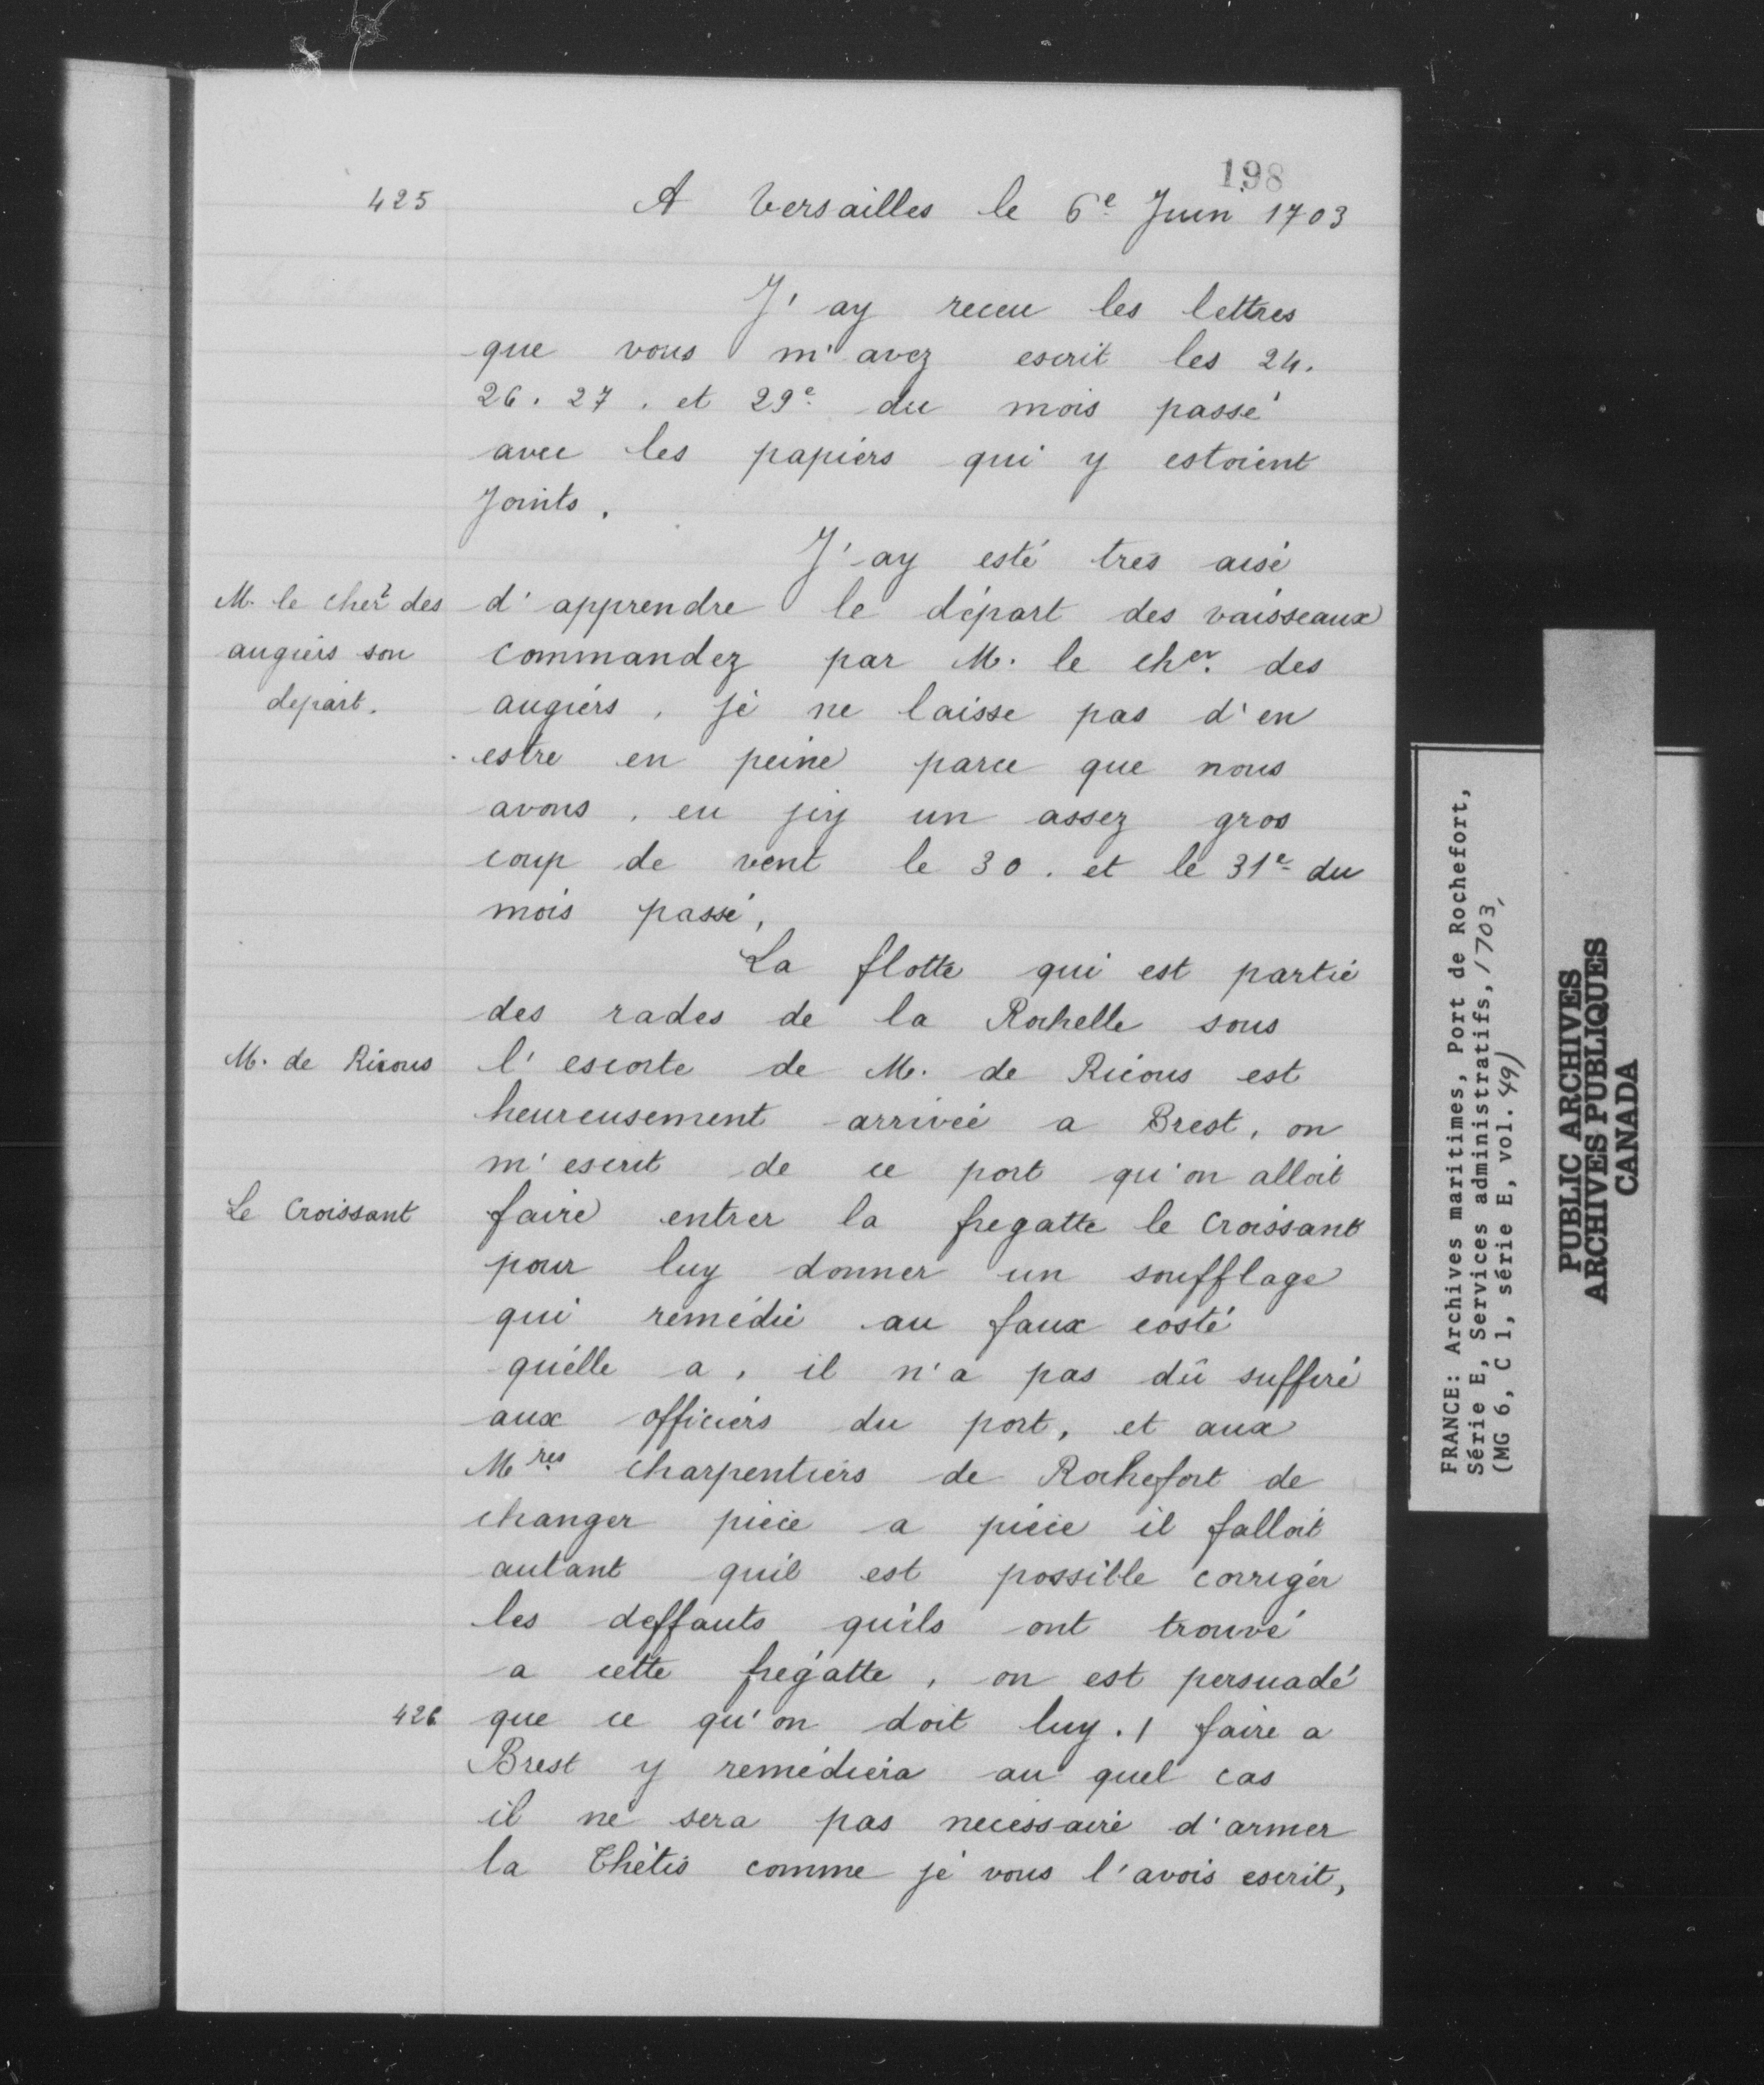 198
425
A Versailles le 6e Juin 1703
J'ay receu les lettres
que vous m'avez escrit les 24.
26. 27. et 29e du mois passé
avec les papiers qui y estoient
Joints.
J'ay esté tres aise
M. le cher des
augiers son
depart.
d'apprendre le départ des vaisseaux
commandez par M. le cher. des
augiers, je ne laisse pas d'en
estre en peine parce que nous
avons, eu jcy un assez gros
coup de vent le 30. et le 31e du
mois passé,
La flotte qui est partie
des rades de la Rochelle sous
M. de Ricous
l'escorte de M. de Ricous est
heureusement arrivée a Brest, on
m'escrit de ce port qu'on alloit
Le Croissant
faire entrer la fregatte le Croissant
pour luy donner un soufflage
qui remédie au faux costé
qu'elle a, il n'a pas dû suffire
aux officiers du port, et aux
Mres charpentiers de Rochefort de
changer piéce a piéce il falloit
autant quil est possible corriger
les deffauts qu'ils ont trouvé
a cette frégatte, on est persuadé
426
que ce qu'on doit luy . / faire a
Brest y remédiera au quel cas
il ne sera pas necessaire d'armer
la Thétis comme je vous l'avois escrit,
FRANCE: Archives maritimes, Port de Rochefort,
Série E, Services administratifs, 1703,
(MG 6, C 1, série E, vol. 49)
PUBLIC ARCHIVES
ARCHIVES PUBLIQUES
CANADA